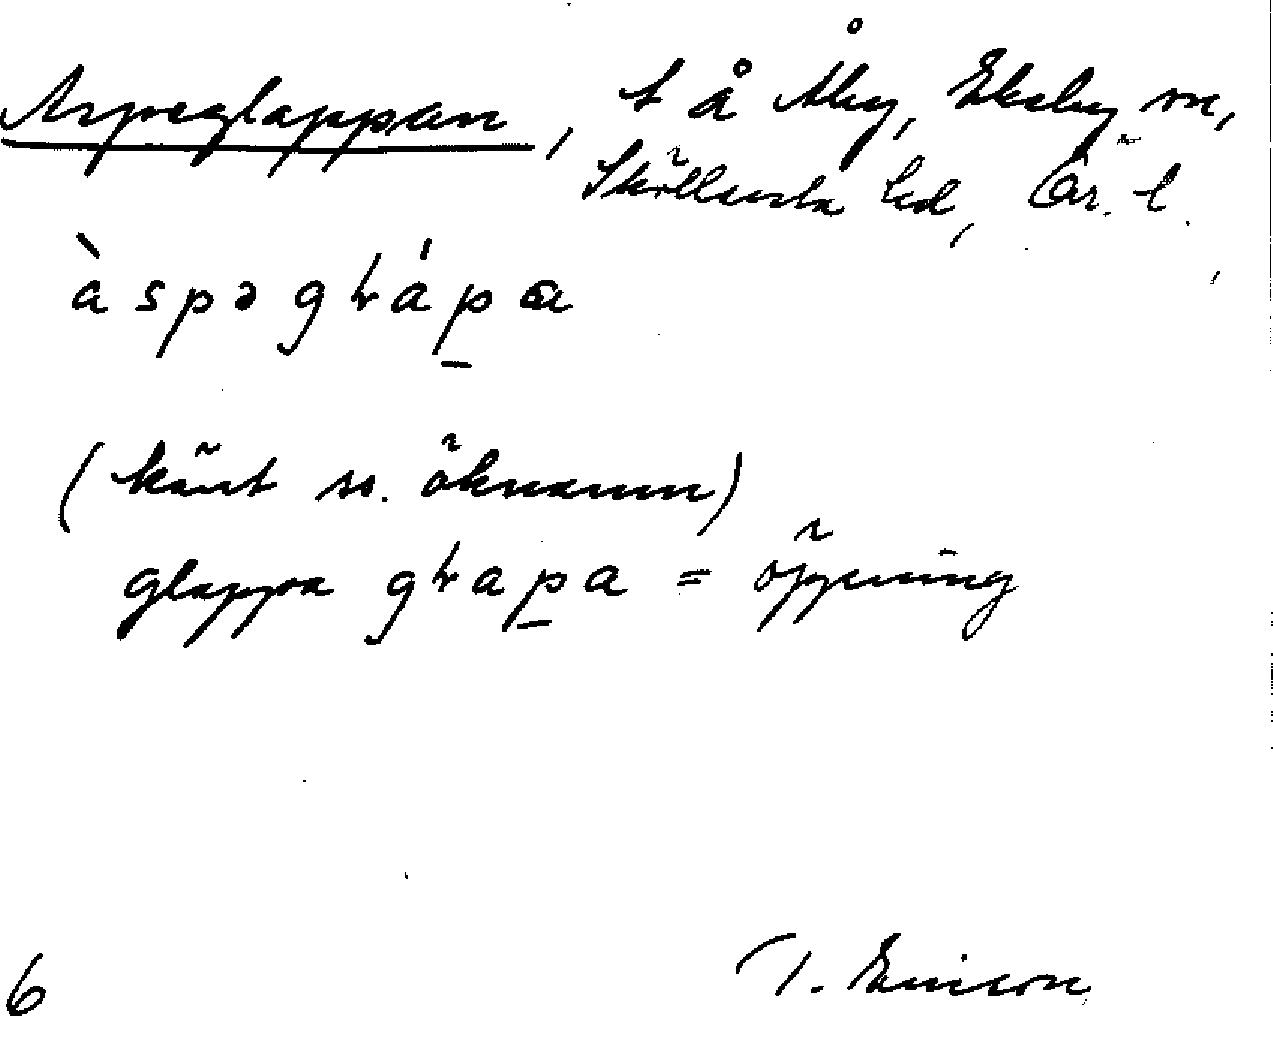 Aspeglappan, t å Åby, Ekeby sn,
Sköllersta hd, Ör. l.
àspəgɫápa
(känt so. öknamn)
glappa gɫapa = öppning
6
T. Ericson